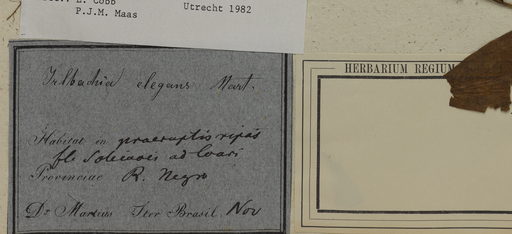 L. Cobb
P.J.M. Maas
Utrecht 1982
Irlbachia elegans Mart.
Habitat in praeruptis ripis
fl. Solimoes ad Coari
Provinciae R. Negro
Dr. Martius Iter Brasil. Nov
HERBARIUM REGIUM